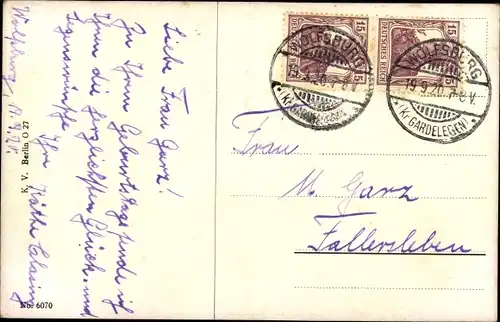 Liebe Frau Garz!
Zu Ihrem Geburtstage sende ich
Ihnen die herzlichsten Glück- und
Segenswünsche Ihre Käthe
Wolfsburg,
K. V. Berlin O 27
No. 6070
15 15
DEUTSCHES REICH
WOLFSBURG
(Kr. GARDELEGEN)
WOLFSBURG
19.9.20. 7-8 V.
* (Kr. GARDELEGEN) *
Frau
M. Garz
Fallersleben